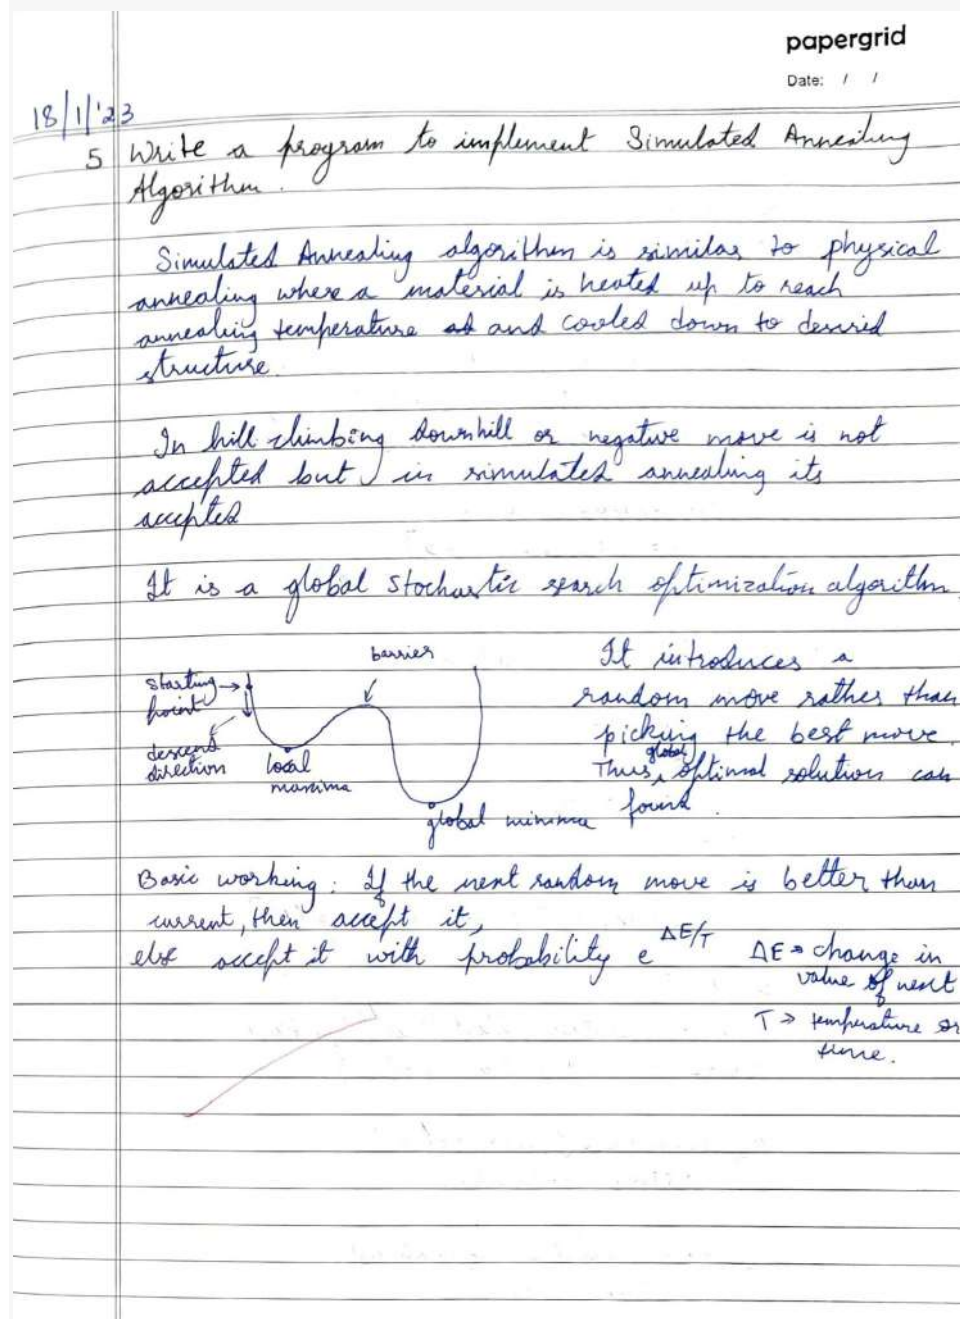 papergrid
Date: / /
18/1/'23
5 Write a program to implement Simulated Annealing
Algorithm.
Simulated Annealing algorithm is similar to physical
annealing where a material is heated up to reach
annealing temperature and cooled down to desired
structure.
In hill climbing downhill or negative move is not
accepted but in simulated annealing its
accepted
It is a global stochastic search optimization algorithm
barrier
starting
point
descend
direction
local
maxima
global minima
It introduces a
random move rather than
picking the best move.
Thus, global optimal solution can
found.
Basic working: If the next random move is better than
current, then accept it,
else accept it with probability e^ΔE/T
ΔE → change in
value of next
T → temperature or
time.